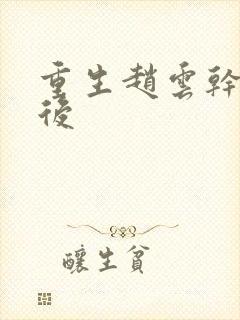 重生趙雲幹
後
釀生貧